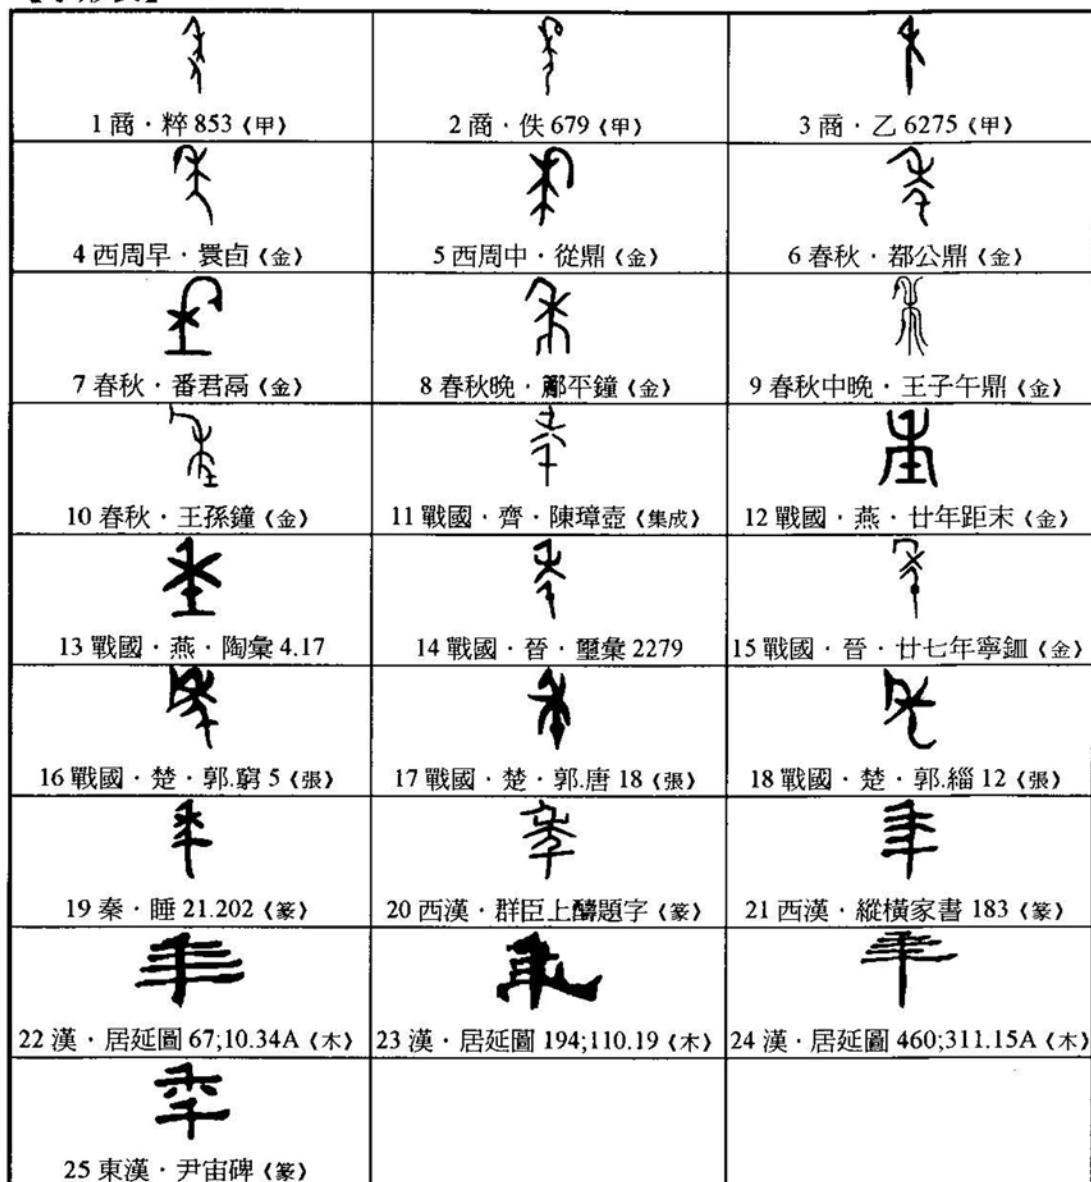 1 商．粹 853《甲》
2 商．佚 679《甲》
3 商．乙 6275《甲》
4 西周早．睘卣《金》
5 西周中．從鼎《金》
6 春秋．都公鼎《金》
7 春秋．番君鬲《金》
8 春秋晚．鄺平鐘《金》
9 春秋中晚．王子午鼎《金》
10 春秋．王孫鐘《金》
11 戰國．齊．陳璋壺《集成》
12 戰國．燕．廿年距末《金》
13 戰國．燕．陶彙 4.17
14 戰國．晉．璽彙 2279
15 戰國．晉．廿七年寧鈿《金》
16 戰國．楚．郭.窮 5《張》
17 戰國．楚．郭.唐 18《張》
18 戰國．楚．郭.緇 12《張》
19 秦．睡 21.202《篆》
20 西漢．群臣上醻題字《篆》
21 西漢．縱橫家書 183《篆》
22 漢．居延圖 67;10.34A《木》
23 漢．居延圖 194;110.19《木》
24 漢．居延圖 460;311.15A《木》
25 東漢．尹宙碑《篆》